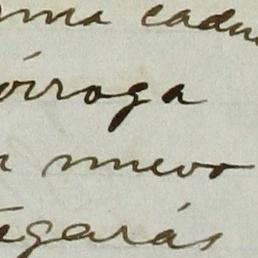 rma cadu
órroga
n nuevo
tegarás